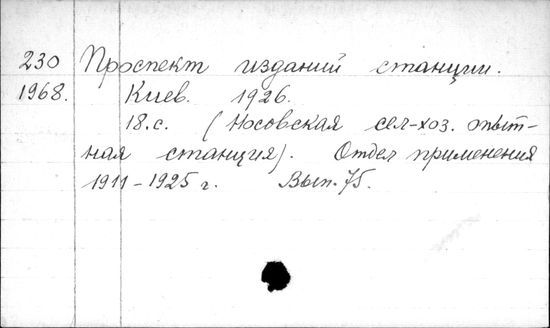 230 Проспект изданий станции.
1968. Киев. 1926.
18.с. (Носовская сел-хоз. опыт-
ная станция). Отдел применения
1911-1925 г. Вып. 75.